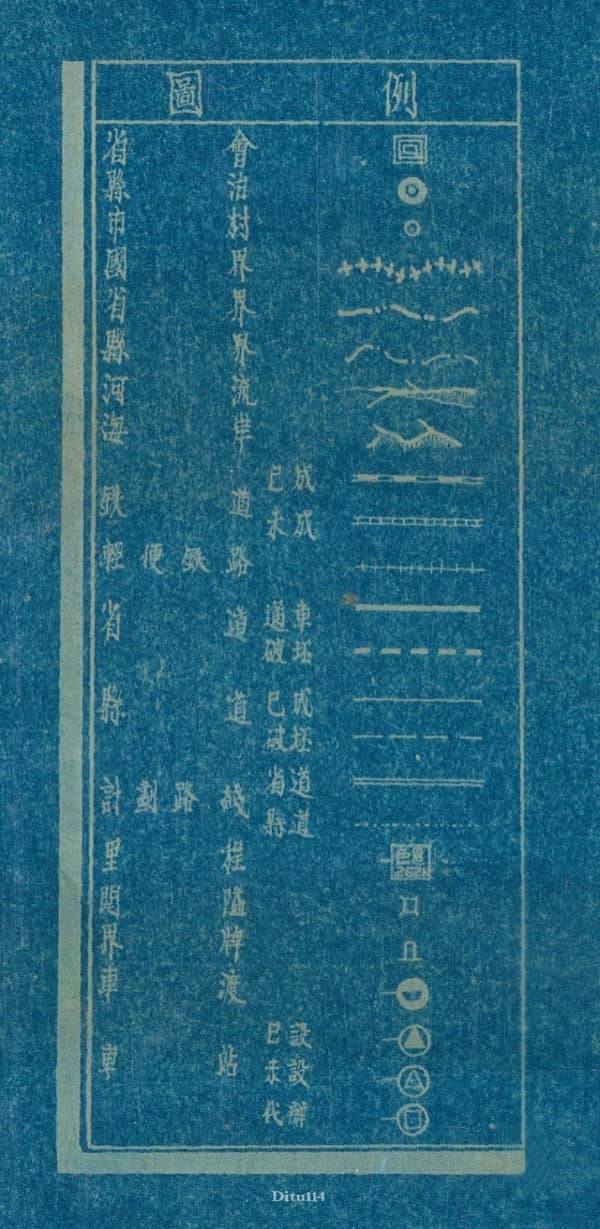 圖例
省會
縣治
市村
國界
省界
縣界
河流
海岸
鉄道 已成
未成
輕便鉄路
省道 通車
破坯
縣道 已成
破坯
計劃路綫 省道
縣道
里程
關隘
界牌
車渡
車站 已設
未設
代辦
Ditu114